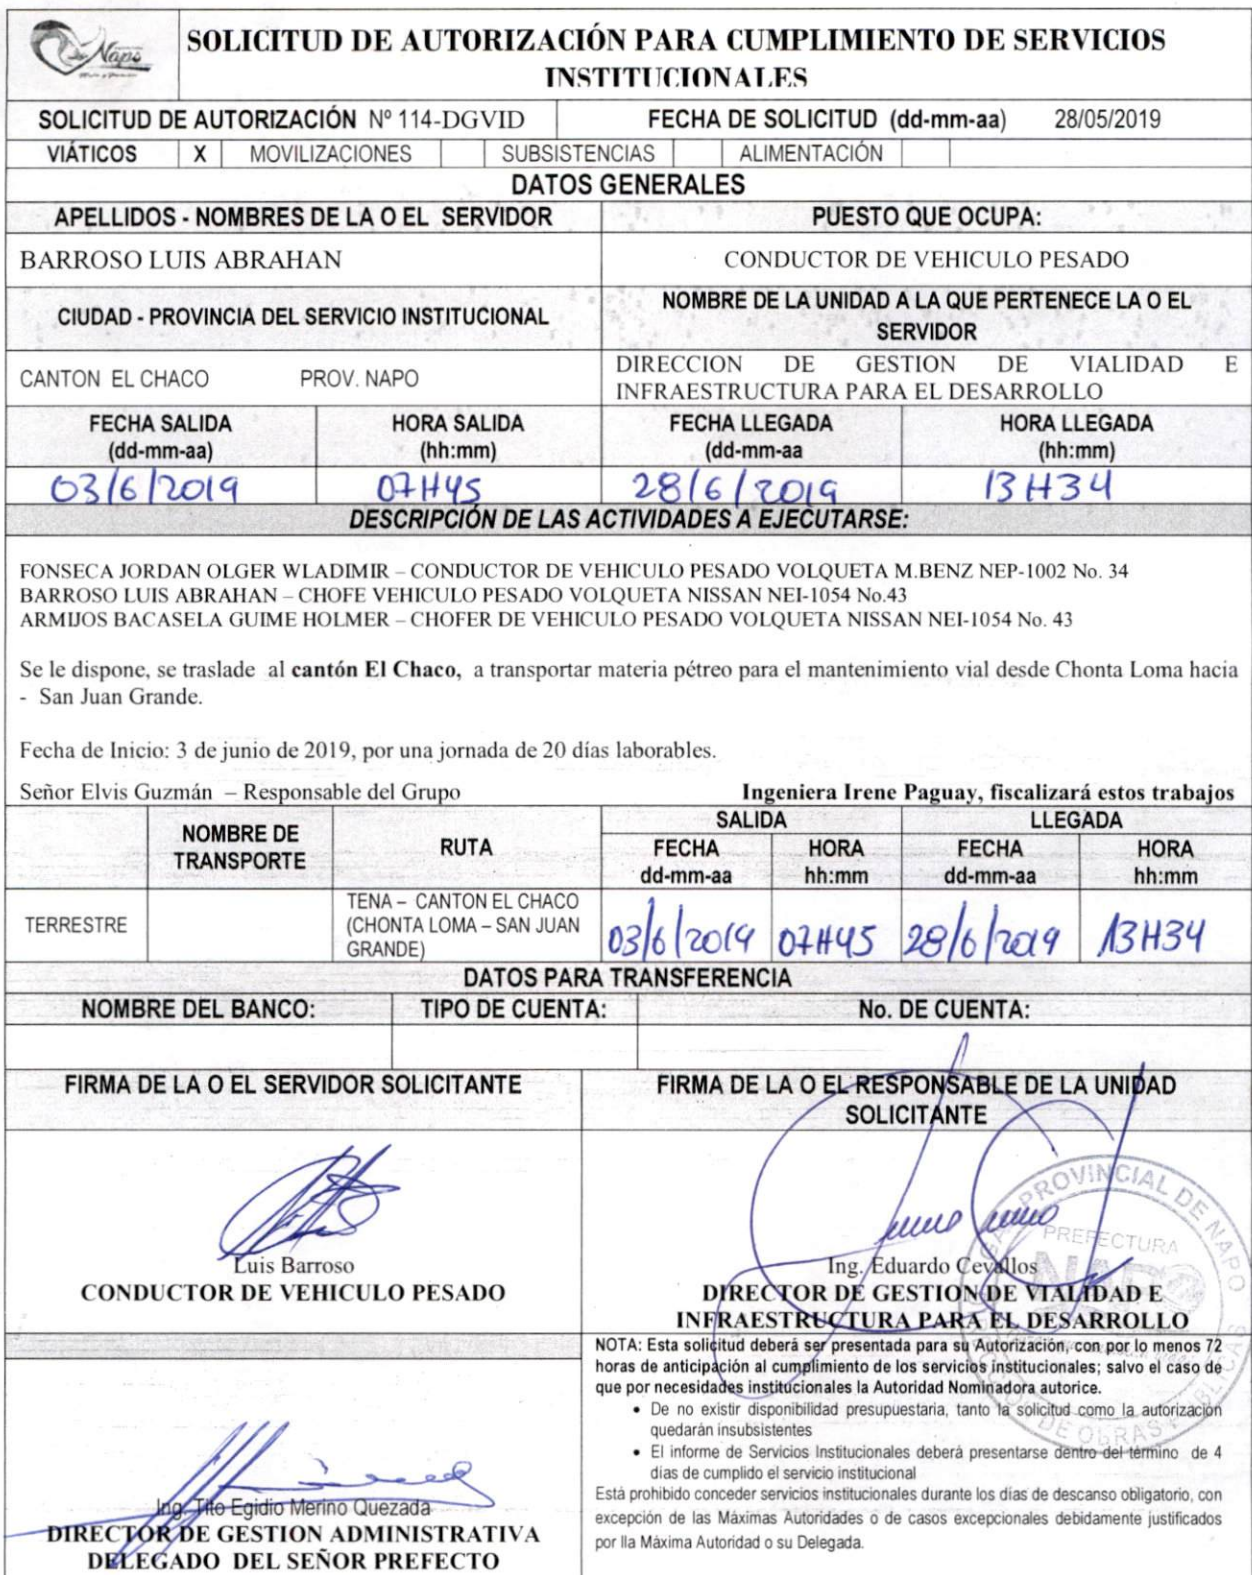 Napo
SOLICITUD DE AUTORIZACIÓN PARA CUMPLIMIENTO DE SERVICIOS
INSTITUCIONALES
SOLICITUD DE AUTORIZACIÓN Nº 114-DGVID FECHA DE SOLICITUD (dd-mm-aa) 28/05/2019
VIÁTICOS X MOVILIZACIONES SUBSISTENCIAS ALIMENTACIÓN
DATOS GENERALES
APELLIDOS - NOMBRES DE LA O EL SERVIDOR PUESTO QUE OCUPA:
BARROSO LUIS ABRAHAN CONDUCTOR DE VEHICULO PESADO
CIUDAD - PROVINCIA DEL SERVICIO INSTITUCIONAL NOMBRE DE LA UNIDAD A LA QUE PERTENECE LA O EL
SERVIDOR
CANTON EL CHACO PROV. NAPO DIRECCION DE GESTION DE VIALIDAD E
INFRAESTRUCTURA PARA EL DESARROLLO
FECHA SALIDA HORA SALIDA FECHA LLEGADA HORA LLEGADA
(dd-mm-aa) (hh:mm) (dd-mm-aa (hh:mm)
03/6/2019 07H45 28/6/2019 13H34
DESCRIPCIÓN DE LAS ACTIVIDADES A EJECUTARSE:
FONSECA JORDAN OLGER WLADIMIR – CONDUCTOR DE VEHICULO PESADO VOLQUETA M.BENZ NEP-1002 No. 34
BARROSO LUIS ABRAHAN – CHOFE VEHICULO PESADO VOLQUETA NISSAN NEI-1054 No.43
ARMIJOS BACASELA GUIME HOLMER – CHOFER DE VEHICULO PESADO VOLQUETA NISSAN NEI-1054 No. 43
Se le dispone, se traslade al cantón El Chaco, a transportar materia pétreo para el mantenimiento vial desde Chonta Loma hacia
- San Juan Grande.
Fecha de Inicio: 3 de junio de 2019, por una jornada de 20 días laborables.
Señor Elvis Guzmán – Responsable del Grupo Ingeniera Irene Paguay, fiscalizará estos trabajos
SALIDA LLEGADA
NOMBRE DE TRANSPORTE RUTA FECHA HORA FECHA HORA
dd-mm-aa hh:mm dd-mm-aa hh:mm
TERRESTRE TENA – CANTON EL CHACO
(CHONTA LOMA – SAN JUAN
GRANDE) 03/6/2019 07H45 28/6/2019 13H34
DATOS PARA TRANSFERENCIA
NOMBRE DEL BANCO: TIPO DE CUENTA: No. DE CUENTA:
FIRMA DE LA O EL SERVIDOR SOLICITANTE FIRMA DE LA O EL RESPONSABLE DE LA UNIDAD
SOLICITANTE
PROVINCIAL DE NAPO
PREFECTURA
NAPO
DE OBRAS PÚBLICAS
Luis Barroso
CONDUCTOR DE VEHICULO PESADO
Ing. Eduardo Cevallos
DIRECTOR DE GESTION DE VIALIDAD E
INFRAESTRUCTURA PARA EL DESARROLLO
NOTA: Esta solicitud deberá ser presentada para su Autorización, con por lo menos 72
horas de anticipación al cumplimiento de los servicios institucionales; salvo el caso de
que por necesidades institucionales la Autoridad Nominadora autorice.
• De no existir disponibilidad presupuestaria, tanto la solicitud como la autorización
quedarán insubsistentes
• El informe de Servicios Institucionales deberá presentarse dentro del término de 4
días de cumplido el servicio institucional
Está prohibido conceder servicios institucionales durante los días de descanso obligatorio, con
excepción de las Máximas Autoridades o de casos excepcionales debidamente justificados
por lla Máxima Autoridad o su Delegada.
Ing. Tito Egidio Merino Quezada
DIRECTOR DE GESTION ADMINISTRATIVA
DELEGADO DEL SEÑOR PREFECTO